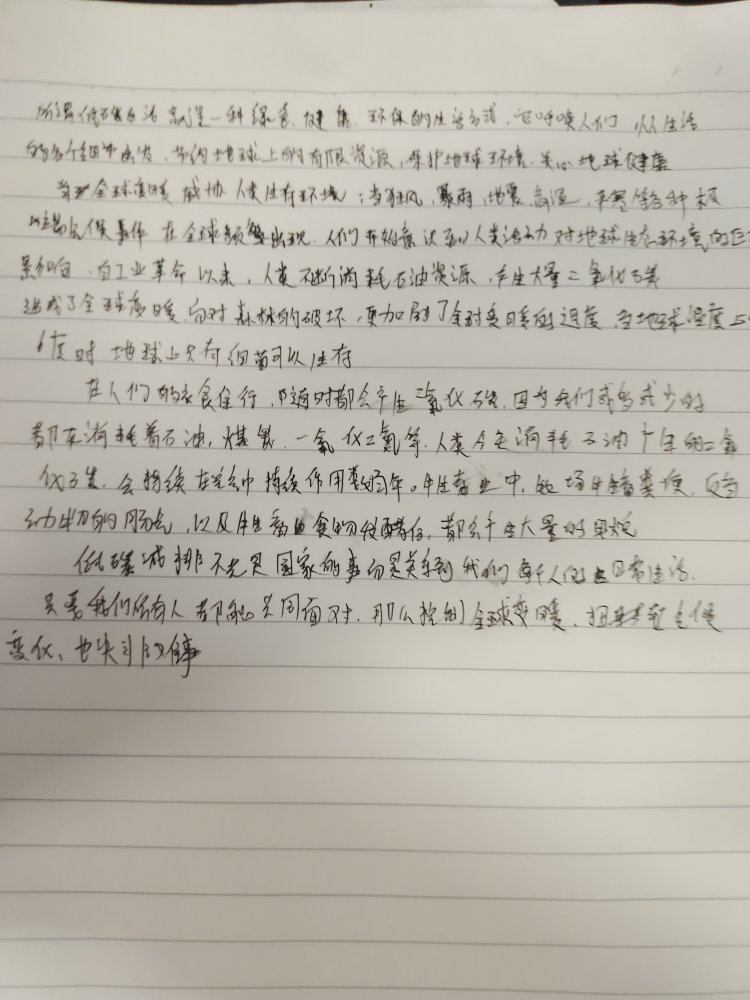 所谓低碳生活就是一种绿色、健康、环保的生活方式,它呼唤人们 从生活
的各个细节出发,节约地球上的有限资源,保护地球环境,关心地球健康
当 全球变暖威协人类生存环境;当狂风,暴雨,地震,高温,严寒等各种极
端气候事件 在全球频繁出现,人们开始意识到人类活动对地球生态环境的巨
影响,自工业革命以来,人类不断消耗石油资源,产生大量二氧化碳
造成了全球变暖,而对森林的破坏,更加剧了全球变暖的进度,当地球温度上
6度时 地球上只有细菌可以生存
在人们的衣食住行,随时都会产生二氧化碳,因为我们或多或少的
都在消耗着石油,煤炭,一氧化二氮等,人类今天消耗石油产生的二氧
化碳,会持续在 中持续作用 年。牛生畜业中, 场牛生畜粪便,反刍
动物的肠气,以及牛生畜业食物发酵后,都会产生大量的甲烷
低碳减排不光是国家的事而是关系到我们每个人的 日常生活,
只要我们所有人都能共同面对,那么控制全球变暖、 气候
变化、也 的事